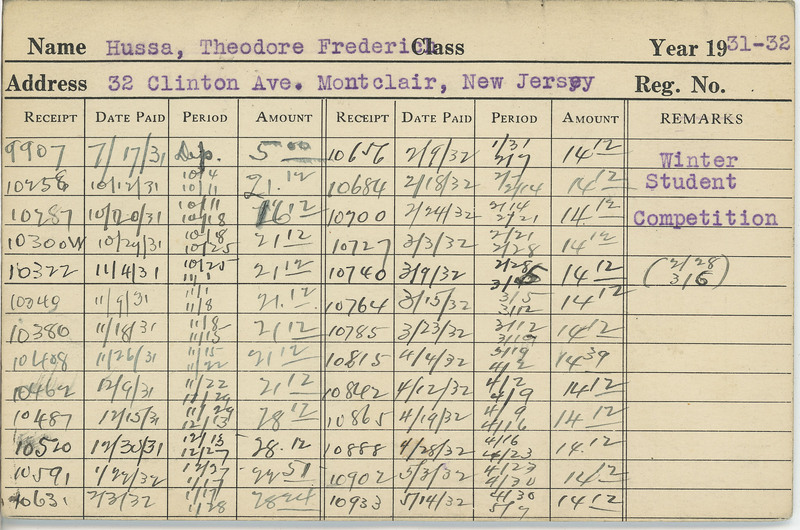 Name Hussa, Theodore Frederich Class Year 1931-32
Address 32 Clinton Ave. Montclair, New Jersey Reg. No.
RECEIPT DATE PAID PERIOD AMOUNT RECEIPT DATE PAID PERIOD AMOUNT REMARKS
9907 7/17/31 Dep. 5.00 10656 2/9/32 1/31 2/7 14 12 Winter
10258 10/12/31 10/4 10/11 21.12 10684 2/18/32 2/7 2/14 14 12 Student
10287 10/20/31 10/11 10/18 16 12 10700 2/24/32 2/14 2/21 14.12 Competition
10300W 10/29/31 10/18 10/25 21 12 10727 3/3/32 2/21 2/28 14 12
10322 11/4/31 10/25 11/1 21.12 10740 3/9/32 2/28 3/5 14 12 (2/28 3/6)
10349 11/9/31 11/1 11/8 21.12 10764 3/15/32 3/5 3/12 14 12
10380 11/18/31 11/8 11/15 21 12 10785 3/23/32 3/12 3/19 14 12
10408 11/26/31 11/15 11/22 21 12 10815 4/4/32 3/19 4/2 14 39
10462 12/9/31 11/22 11/29 21 12 10842 4/12/32 4/2 4/9 14 12
10487 12/15/31 11/29 12/13 28 12 10865 4/19/32 4/9 4/16 14 12
10520 12/30/31 12/13 12/27 28.12 10888 4/28/32 4/16 4/23 14.12
10591 1/22/32 12/27 1/17 22 51 10902 5/3/32 4/23 4/30 14 12
10631 2/3/32 1/17 1/28 28 24 10933 5/14/32 4/30 5/7 14 12